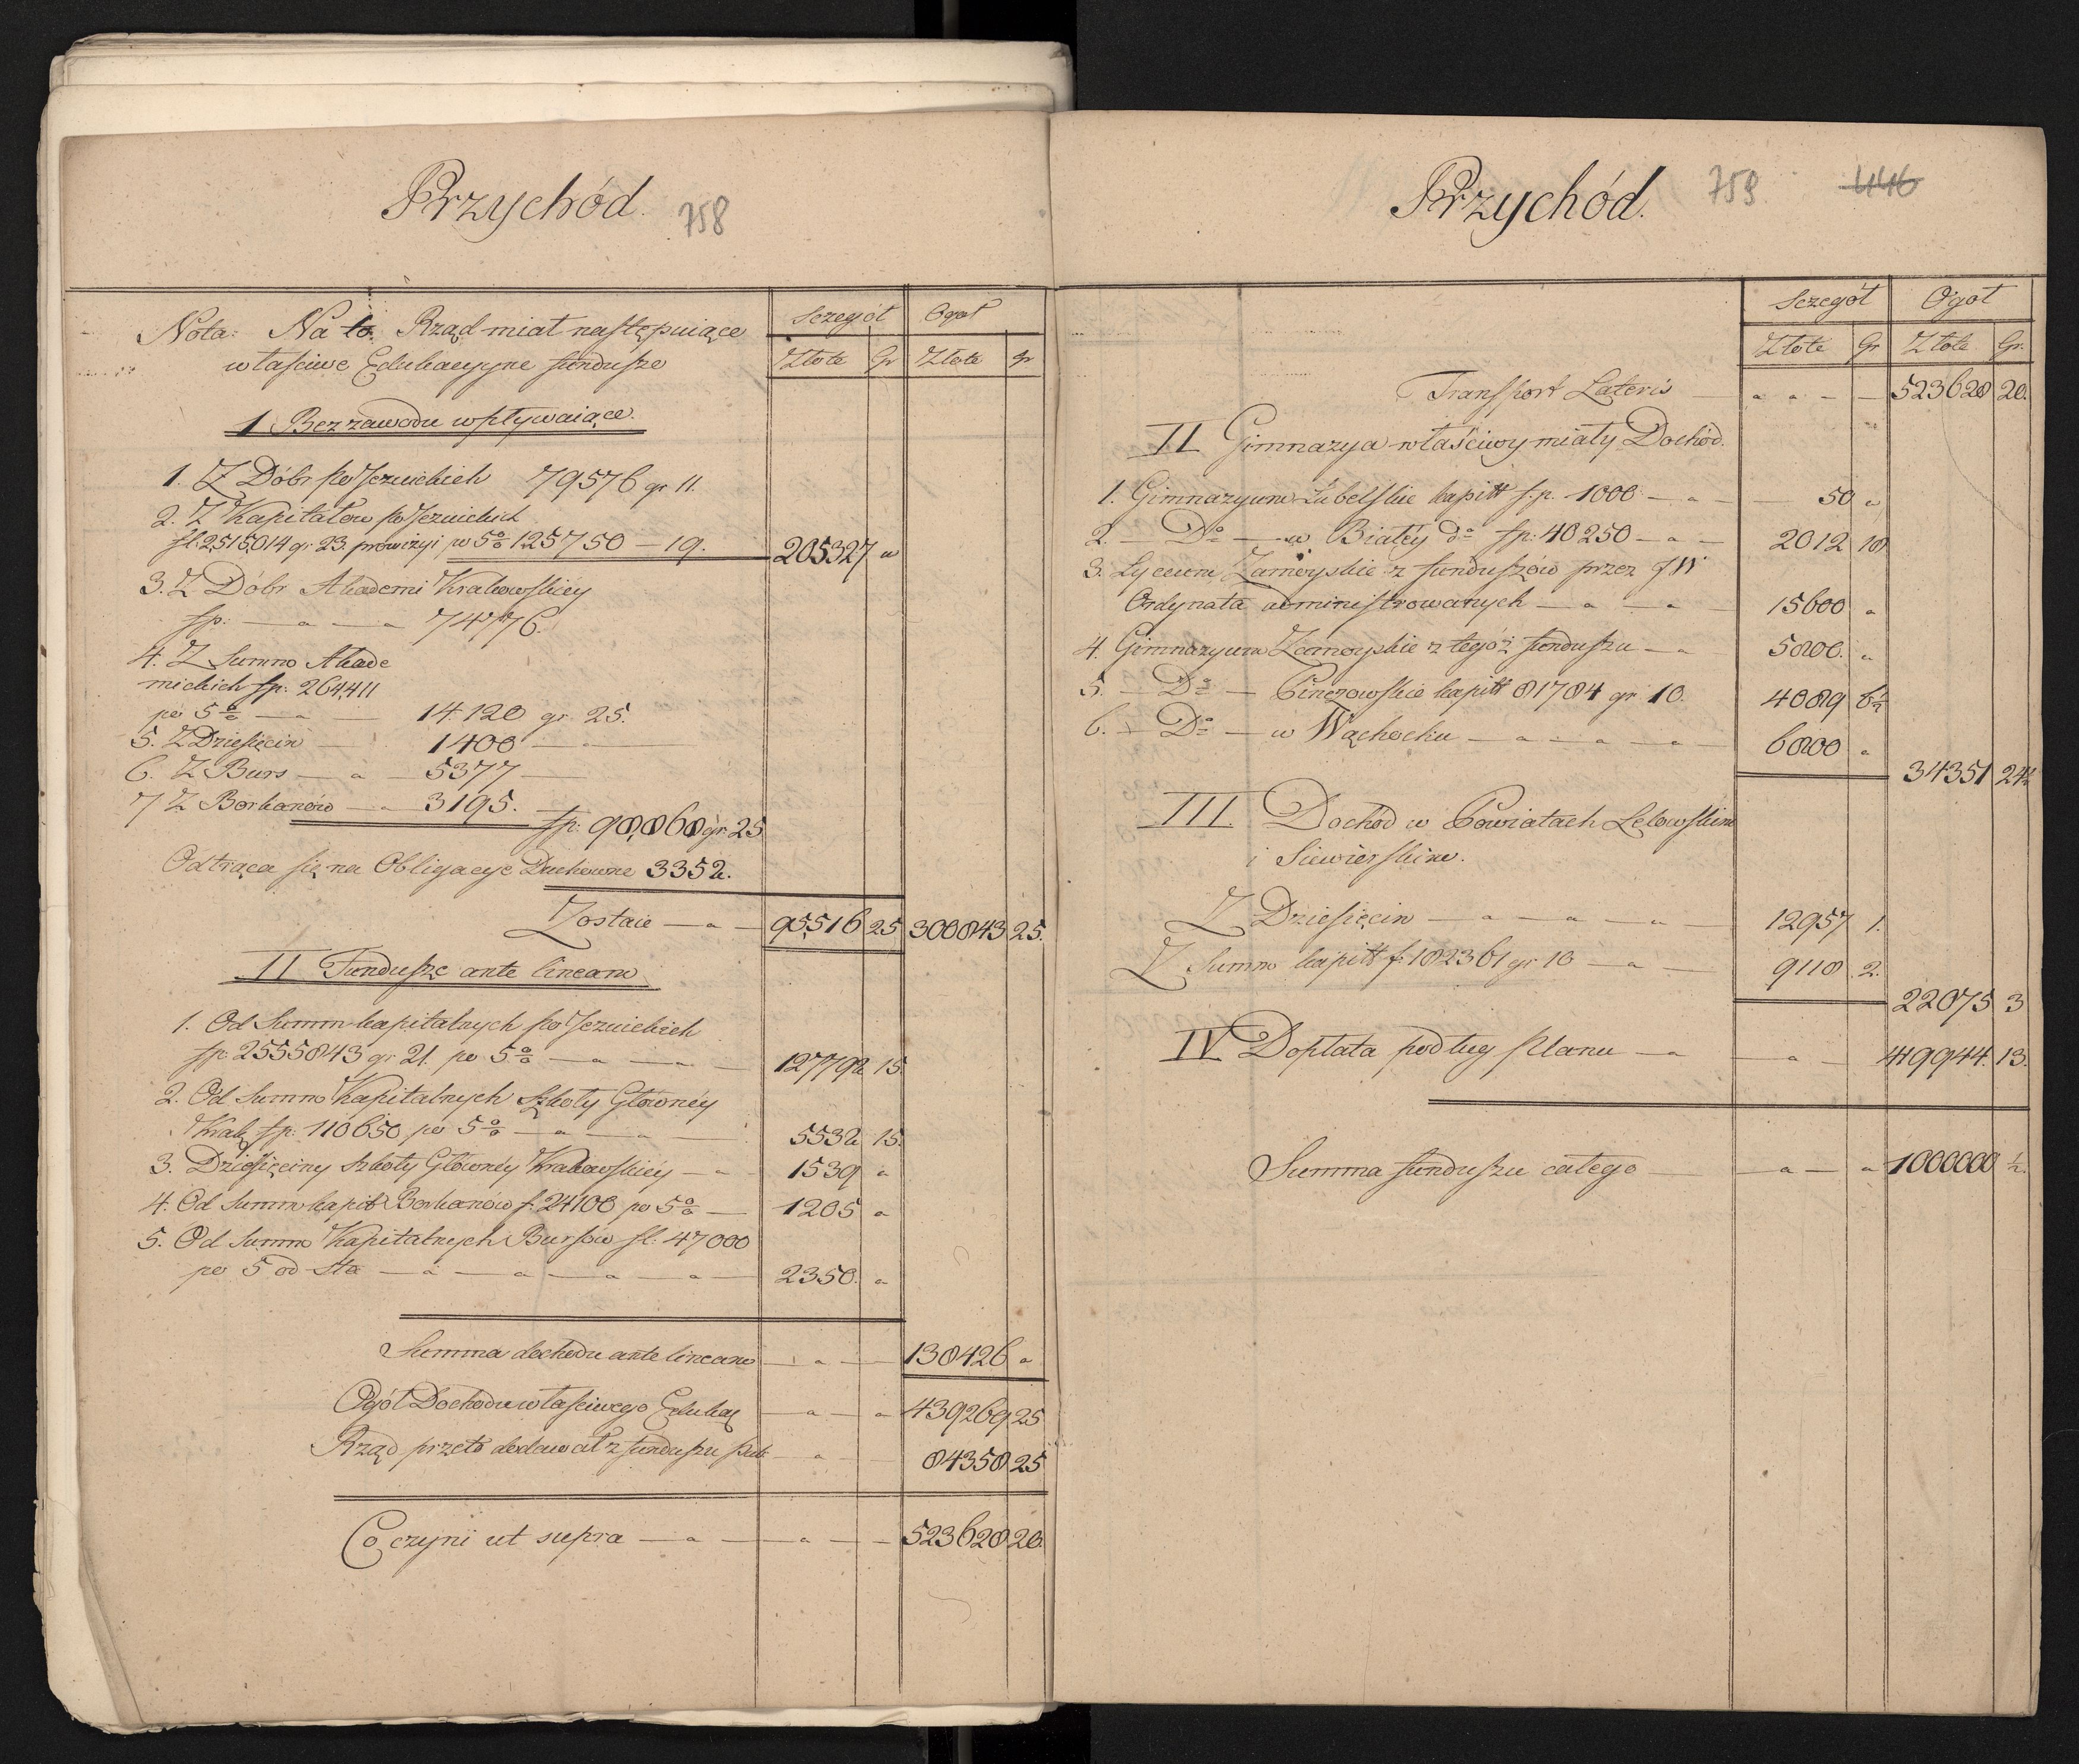 Przychód.
758
Szczegół Ogół
Złote Gr Złote gr
Nota: Na to Rząd miał następuiące
właściwe Edukacyyne fundusze
1 Bez zawodu wpływaiące.
1. Z Dóbr po Jezuickich 79576 gr 11.
2. Z Kapitałow po Jezuickich
fl. 2515014 gr 23. prowizyi po 5% 125750 — 19. 205327 „
3. Z Dóbr Akademi Krakowskiey
fp: — „ — „ 74776.
4. Z Summ Akade
mickich fp: 264411
po 5% — „ — 14120 gr 25.
5. Z Dziesięcin — 1400 —
6. Z Burs — „ — 5377 —
7 Z Borkanów — „ 3195.
fp: 98,868 gr: 25
Odtrąca się na Obligacye Duchowne 3352.
Zostaie — „ — 95516 25 300843 25.
II Fundusze ante lineam
1. Od Summ kapitalnych po Jezuickich
fp: 2555843 gr 21. po 5% — „ — „ — 127792 15.
2. Od Summ Kapitalnych Szkoły Główney
Krak. fp: 110650 po 5% — „ — „ — 5532 15.
3. Dziesięciny szkoły Główney Krakowskiey — „ 1539 „
4. Od Summ kapit Borkanów f. 24100 po 5% — 1205 „
5. Od Summ Kapitalnych Bursów fl: 47000
po 5 od sta — „ — „ — „ — „ — 2350. „
Summa dochodu ante lineam — „ — 138426 „
Ogół Dochodu właściwego Edukac — „ — „ 439269 25
Rząd przeto dodawał z funduszu pub — „ — 84358 25
Co czyni ut supra — „ — „ — 523628 20.
Przychód.
759. 446
Szczegół Ogół
Złote Gr Złote Gr.
Transport Lateris — „ „ — — 523628 20.
II Gimnazya właściwy miały Dochód.
1. Gimnazyum Lubelskie kapitt f. p. 1000 — „ — 50 „
2. — Do — w Białey do fp: 40250 — „ — 2012 18
3. Lyceum Zamoyskie z funduszów przez JW
Ordynata administrowanych — „ — „ — 15600 „
4. Gimnazyum Zamoyskie z tegoż funduszu — „ 5800. „
5. — Do — Pinczowskie kapitt 81784 gr 10. 4089 6½
6. — Do — w Wąchocku — „ — „ — „ — 6800 „
34351 24½
III. Dochód w Powiatach Lelowskim
i Siewierskim.
Z Dziesięcin — „ — „ — „ — 12957 1.
Z Summ kapitt f. 182361 gr 10 — „ — 9118 2.
22075 3
IV Dopłata podług Planu — „ — „ — 419944. 13.
Summa funduszu całego — „ — „ 1000000 ½.